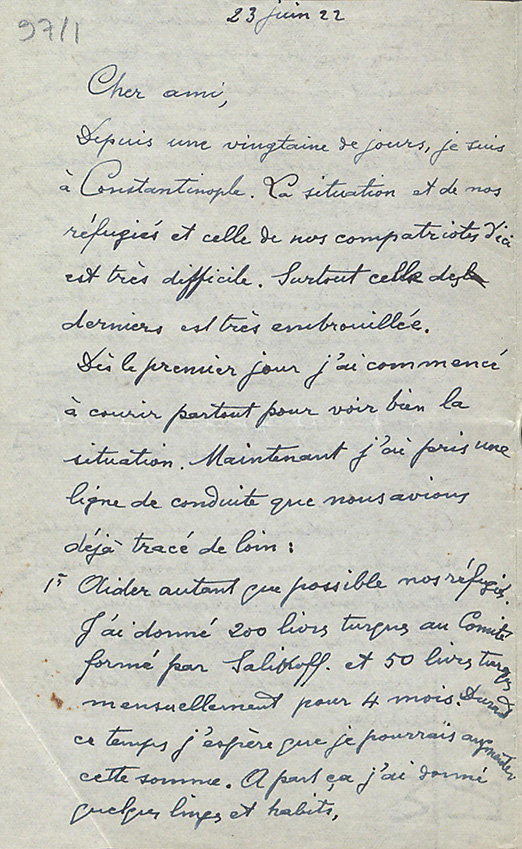 23 juin 22
97/1
Cher ami,
Depuis une vingtaine de jours, je suis
à Constantinople. La situation et de nos
réfugiés et celle de nos compatriotes d'ici
est très difficile. Surtout celle des
derniers est très embrouillée.
Dès le premier jour j'ai commencé
à courir partout pour voir bien la
situation. Maintenant j'ai pris une
ligne de conduite que nous avions
déjà tracé de loin :
1º Aider autant que possible nos réfugiés.
J'ai donné 200 livres turques au Comité
formé par Salikoff. et 50 livres turques
mensuellement pour 4 mois. Durant
ce temps j'espère que je pourrais augmenter
cette somme. A part ça j'ai donné
quelques linges et habits,